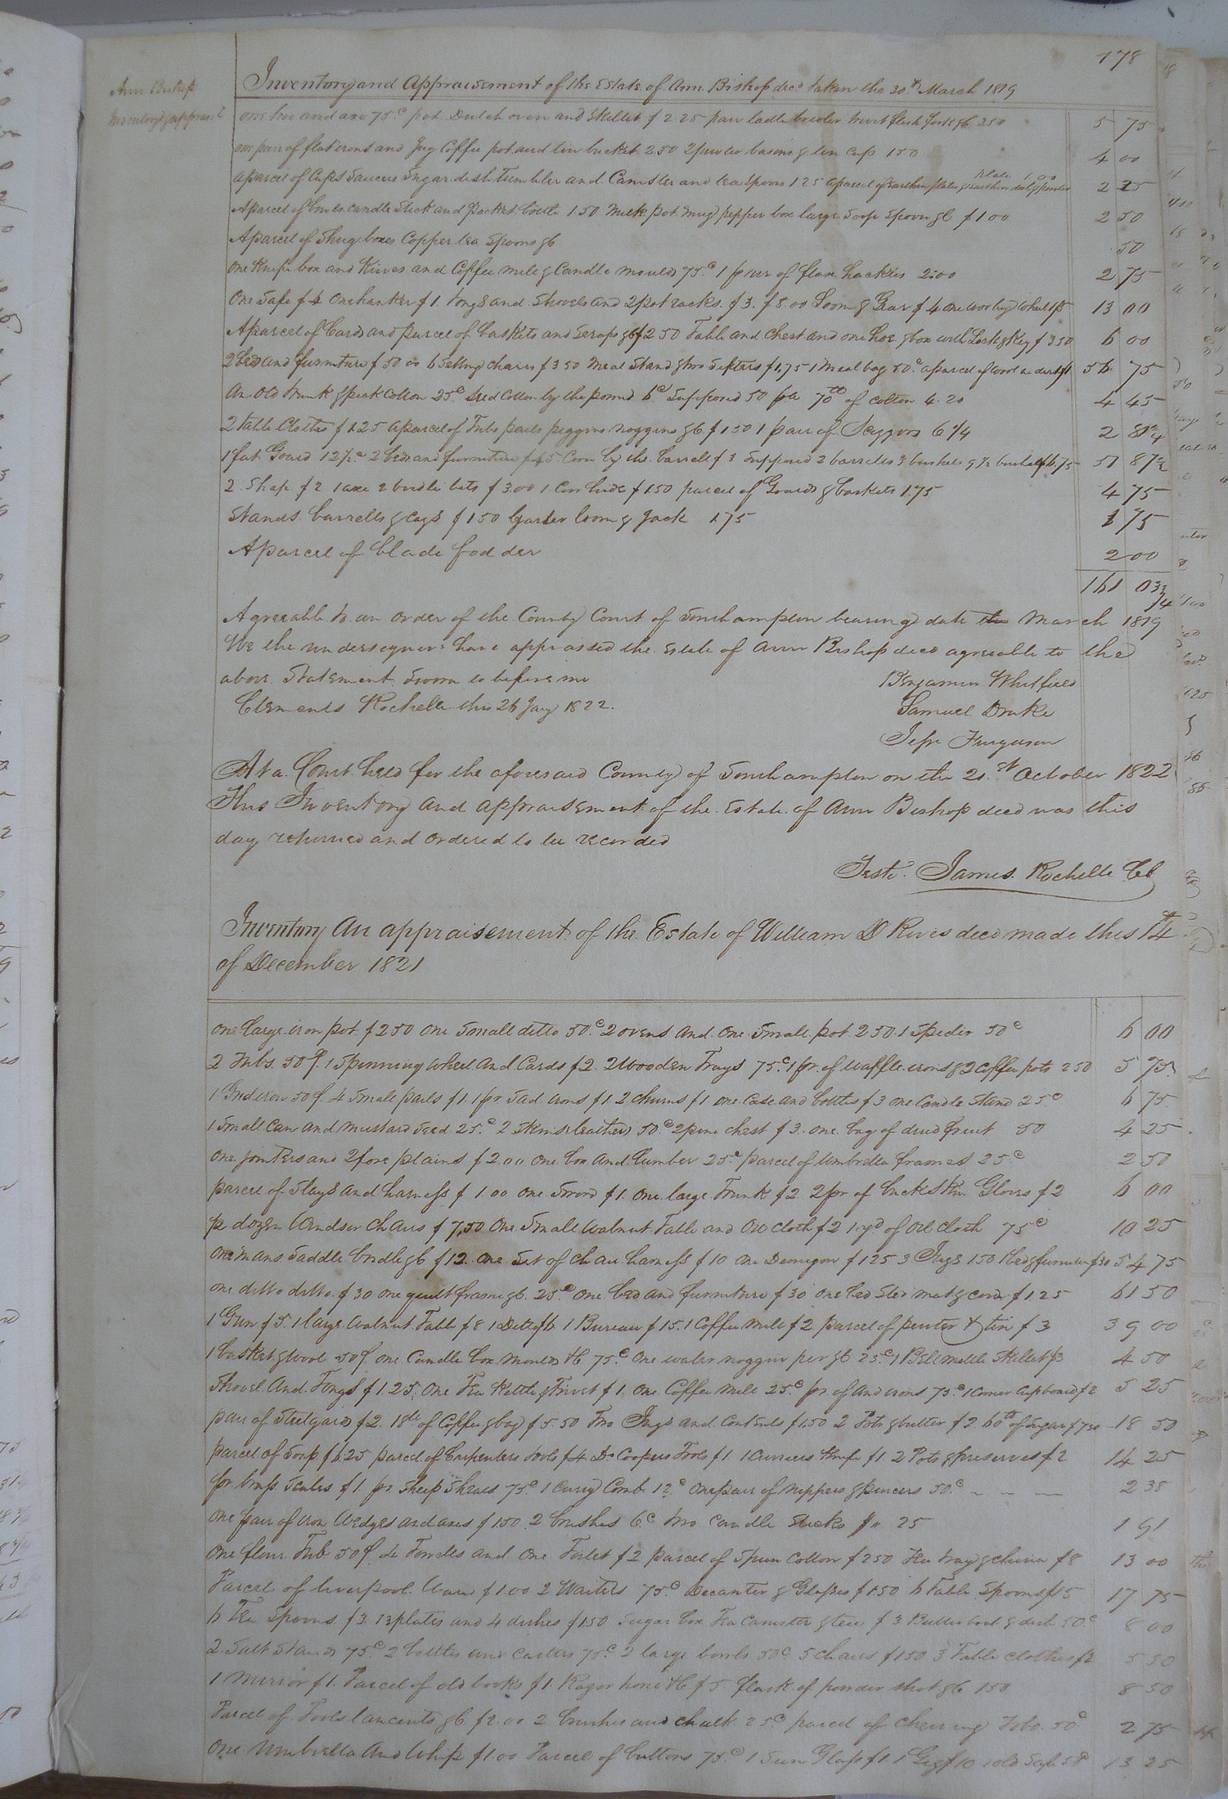 178
Ann Bishop
Inventory & appraist
Inventory and Appraisement of the Estate of Ann Bishop decd taken the 30th March 1819
and axe 75c pot Dutch oven and Skillet $2.25 pair ladle flesh fork &c 2 50 5 75
one pair of flat irons and Jug Coffee pot and tin bucket 2.50 2 pewter basons & tin cup 150 4 00
A parcel of Cups Saucers Sugar dish Tumbler and Canister and tea spoons 1 25 a parcel of Earthen plates 1.00 2 25
A parcel of candle Stick and pocket bottle 1.50 Milk pot mug pepper box large Soop Spoon &c $1 00 2 50
A parcel of boxes Copper tea Spoons &c 50
One Knife box and Knives and Coffee mill & Candle moulds 75c 1 pair of flax hackles 2.00 2 75
One Safe $4 $1 Tongs and Shovels and 2 pot racks $3. $8.00 Loom & Gear $4 one wooling wheel $5 13 00
A parcel of Cards and parcel of baskets and Scraps &c $2 50 Table and Chest and one box with Lock & Key $3 50 6 00
2 beds and furniture $50 00 6 Setting chairs $3 50 Meal Stand & two Sifters $1,75 1 Meal bag 50c a parcel of wood 56 75
An Old trunk & pick Cotton 25c Seed Cotton by the pound 6c Supposed 70 lb of cotton 4.20 4 45
2 Table Clothes $1.25 a parcel of Tubs pails piggins noggins &c $1 50 1 pair of Scissors 6 1/4 2 81 1/4
1 fat Gourd 12 1/2c 2 beds and furniture $45 Corn by the barrel $3 Supposed 2 barrells 51 87 1/2
2 $2 1 axe 2 bridle bits $3.00 1 Cow hide $1 50 parcel of Gourds & baskets 1.75 4 75
Stands barrells & cags $1 50 Garter loom & Jack 1.75 1 75
A parcel of blade fodder 2 00
161 03 3/4
Agreeable to an order of the County Court of Southampton bearing date March 1819
We the undersigners have appraised the Estate of Ann Bishop decd agreeable to the
above Statement Sworn to before me Benjamin Whitfield
Clements Rochelle this 26 Jany 1822. Samuel Drake
Ferguson
At a Court held for the aforesaid County of Southampton on the 21st October 1822
This Inventory and appraisement of the Estate of Ann Bishop decd was this
day returned and Ordered to be recorded
Teste. James Rochelle Cl
Inventory An appraisement of the Estate of William D Rives decd made this 14th
of December 1821
One large iron pot $2 50 one Small ditto 50c 2 ovens and one Small pot 2 50 1 Spider 50c 6 00
2 Tubs 50c 1 Spinning wheel and Cards $2 2 Wooden Trays 75c 1 pr. of waffle irons & 2 Coffee pots 2 50 5 75
1 Grid iron 50c 4 Small pails $1 1 pr Sad irons $1 2 churns $1 one Case and bottles $3 one Candle Stand 25c 6 75
1 Small Can and Mustard Seed 25c 2 Skins leather 50c 2 pine chest $3. one bag of dried fruit 50 4 25
One Jointers and 2 fore plains $2 00 One box and lumber 25c parcel of Umbrella frames 25c 2 50
parcel of Stays and harness $1.00 One Sword $1. One large Trunk $2 2 pr of buckskin Gloves $2 6 00
1/2 dozen Windsor Chairs $7,50 One Small walnut Table and oil Cloth $2 1 yd of oil Cloth 75c 10 25
One mans Saddle bridle &c $12. One Set of Chair harness $10 One Demijon $1 25 3 Jugs 150 1 bed & furniture $30 54 75
one ditto ditto. $30 one quilt frame &c. 25c One bed and furniture $30 One bed Sted mat & cord $1 25 61 50
1 Gun $5. 1 large Walnut Table $8 1 Ditto $6 1 Bureau $15. 1 Coffee Mill $2 parcel of pewter & tin $3 39 00
1 basket & wool 50c. One Candle box moulds &c 75c One water noggin &c 25c 1 Bell mettle Skillet $3 4 50
Shovel And Tongs $1.25. One Tea Kettle & Trivet $1. One Coffee Mill 25c pr of And irons 75c 1 Corner Cupboard $2 5 25
pair of Steelyards $2. 18 lb of Coffee & bag $5.50 Two Jugs and Contents $1.50 2 Pots & butter $2. 60 lb of Sugar $7 50 18 50
parcel of Soap $6.25 parcel of Carpenters tools $4 Do Coopers Tools $1 1 Curriers Knife $1. 2 Pots & preserves $2 14 25
pr brass Scales $1 pr Sheep Shears 75c 1 Curry Comb 12c One pair of Nippers & pincers 50c 2 35
One pair of iron Wedges and axes $1 50 2 brushes 6c two Candle Sticks 25 1 91
One flour Tub 50c. Towels and One Toilet $2 parcel of Spun Cotton $2 50 Tea tray & china $8 13 00
Parcel of liverpool Ware $1.00 2 Waiters 75c Decanter & Glasses $1.50 6 Table Spoons $15 17 75
6 Tea Spoons $3 13 plates and 4 dishes $1 50 Sugar box Tea Canister & tea $3 Butter boat & dish 50c 8 00
2 Salt Stands 75c 2 bottles and Castors 75c 2 large bowls 50c 5 chairs $1 50 3 Table clothes $2 5 50
1 Mirror $1. Parcel of old books $1. Razor hone &c $5 flask of powder shot &c 150 8 50
Parcel of Tools lancents &c $2.00 2 brushes and chalk 25c parcel of chewing Tobo. 50c 2 75
One Umbrella And Whip $1.00 Parcel of buttons 75c 1 Sun Glass 1 Gig $10 1 old Safe 13 25